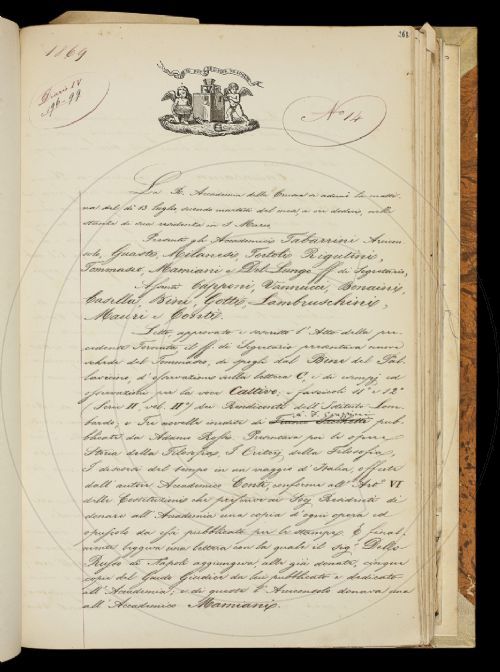 268
1869
Diario IV
196-99
N.º 14
La R. Accademia della Crusca si adunò la matti-
na del dì 13 luglio, secondo martedì del mese, a ore dodici, nelle
stanze di sua residenza in S. Marco.
Presenti gli Accademici Tabarrini Arcicon-
solo, Guasti, Milanesi, Tortoli, Rigutini,
Tommaseo, Mamiani e Del Lungo ff. di Segretario,
Assenti Capponi, Vannucci, Bonaini,
Casella, Bini, Gotti, Lambruschini,
Mauri e Conti.
Letto approvato e sottoscritto l'Atto della pre-
cedente Tornata, il ff. di Segretario presentava nuove
schede del Tommaseo, di spogli dal Bini del Pal-
lavicino, d'osservazioni sulla lettera C, e di esempj ed
osservazioni per la voce Cattivo; i fascicoli 11º e 12º
(Serie II, vol. IIº) dei Rendiconti dell'Istituto Lom-
bardo; e Tre novelle inedite di Franco Sacchetti pub-
blicate da Adamo Rossi. Presentava poi le opere
Storia della Filosofia, I Criterj della Filosofia,
I discorsi del tempo in un viaggio d'Italia, offerte
dall'autore Accademico Conti, conforme all'Art.º VI
delle Costituzioni che prescrive ai Soci Residenti di
donare all'Accademia una copia d'ogni opera ed
opuscolo da essi pubblicato per le stampe. E final-
mente leggeva una lettera con la quale il sig.r Dello
Russo di Napoli aggiungeva alle già donate, cinque
copie del Guido Giudice da lui pubblicato e dedicato
all'Accademia; e di queste l'Arciconsolo donava una
all'Accademico Mamiani.